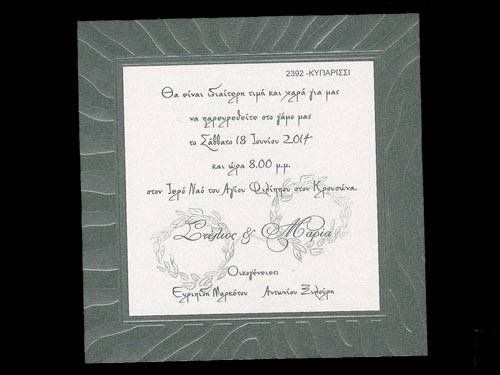 2392 -ΚΥΠΑΡΙΣΣΙ
Θα είναι ιδιαίτερη τιμή και χαρά για μας
να παρευρεθείτε στο γάμο μας
το Σάββατο 18 Ιουνίου 2014
και ώρα 8.00 μ.μ.
στον Ιερό Ναό του Αγίου Φιλίππου στον
Στέλιος & Μαρία
Οικογένειες:
Ευριπίδη Μαρκάτου Αντωνίου Ξυλούρη